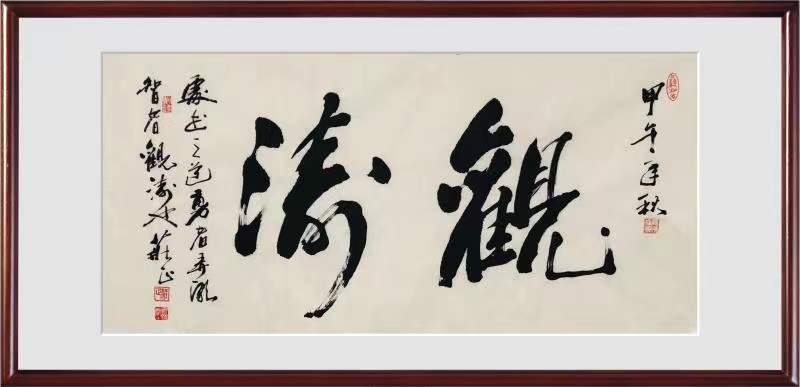 甲午年秋
觀濤
處世之道勇者弄潮
智者觀濤 莊正